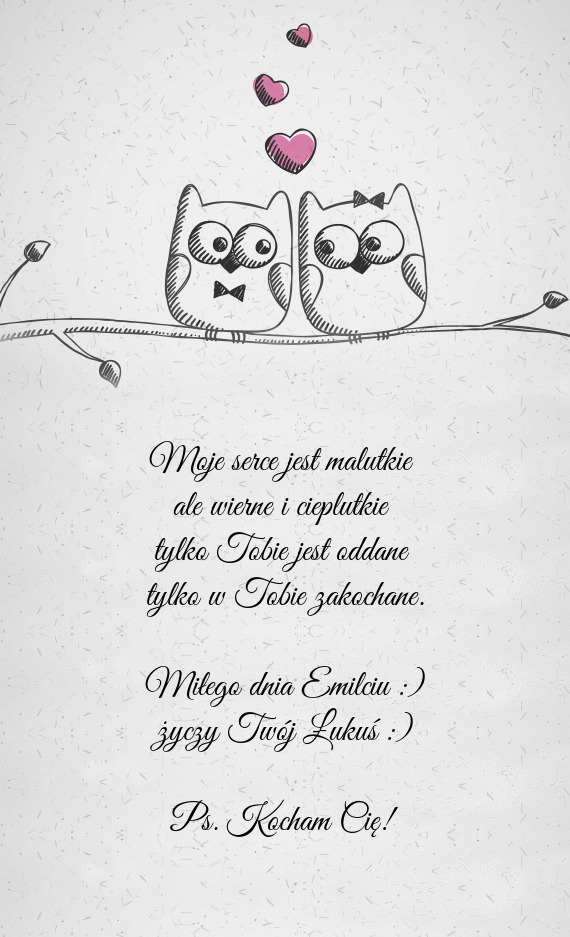 Moje serce jest malutkie
ale wierne i cieplutkie
tylko Tobie jest oddane
tylko w Tobie zakochane.
Miłego dnia Emilciu :)
życzy Twój Łukuś :)
Ps. Kocham Cię!